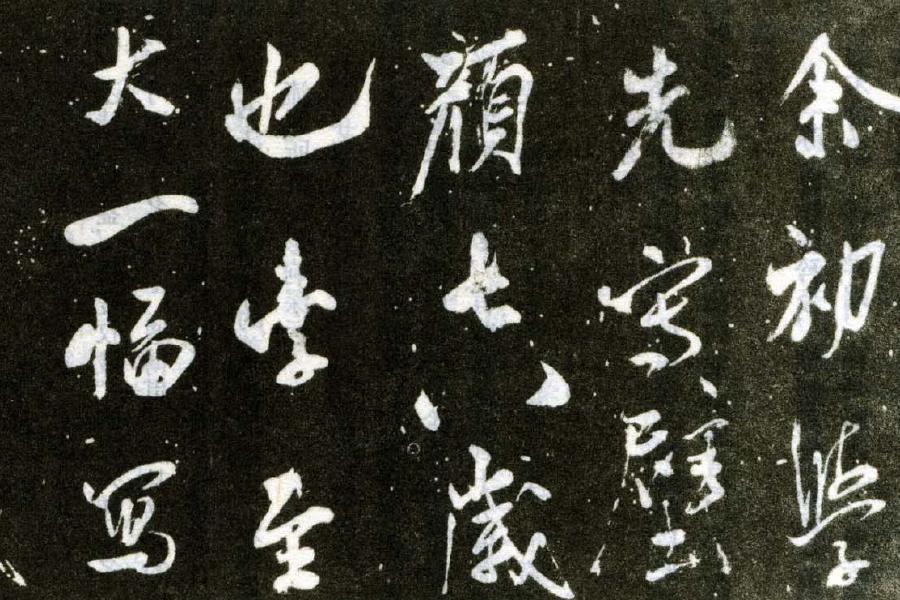 余初學
先寫壁
顏七八歲
也字至
大一幅寫